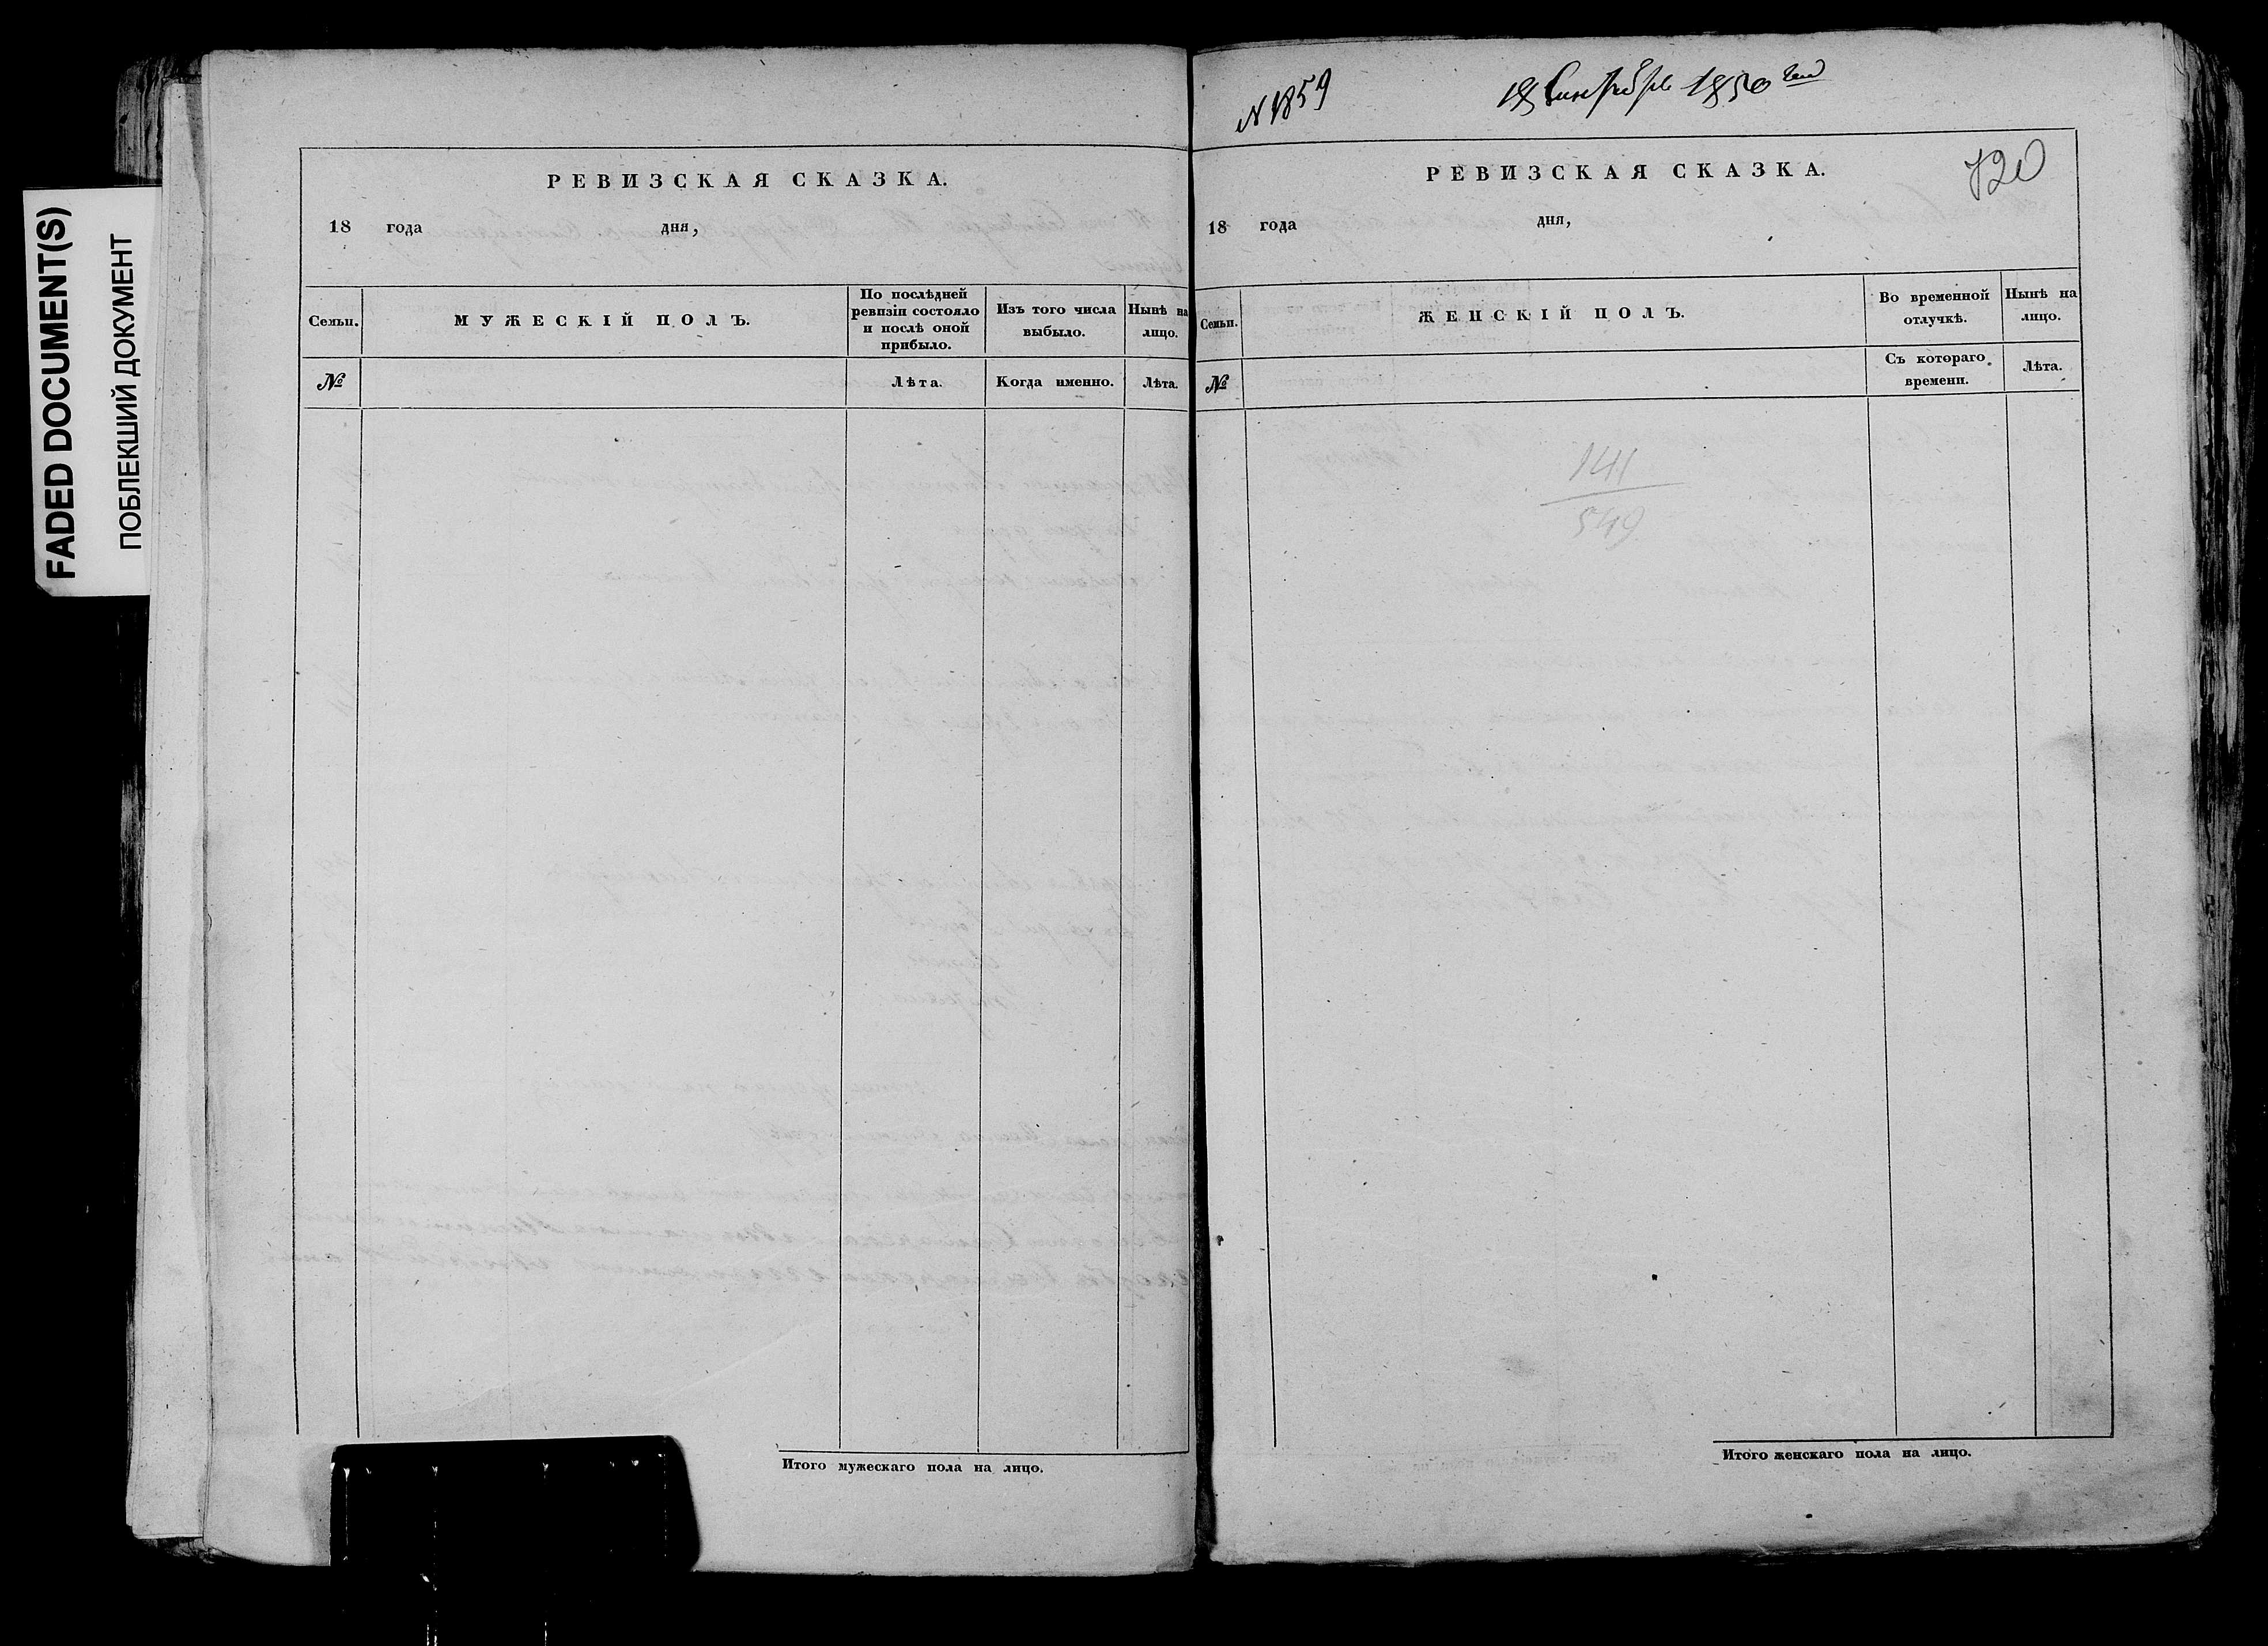 FADED DOCUMENT(S)
ПОБЛЕКШИЙ ДОКУМЕНТ
РЕВИЗСКАЯ СКАЗКА.
18 года дня,
Семьи.
МУЖЕСКІЙ ПОЛЪ.
По послѣдней
ревизіи состояло
и послѣ оной
прибыло.
Изъ того числа
выбыло.
Нынѣ на
лицо.
№
Лѣта.
Когда именно.
Лѣта.
Итого мужескаго пола на лицо.
N 1859
18 Сентября 1850 года
720
РЕВИЗСКАЯ СКАЗКА.
18 года дня,
Семьи.
ЖЕНСКІЙ ПОЛЪ.
Во временной
отлучкѣ.
Нынѣ на
лицо.
№
Съ котораго
времени.
Лѣта.
141
549
Итого женскаго пола на лицо.